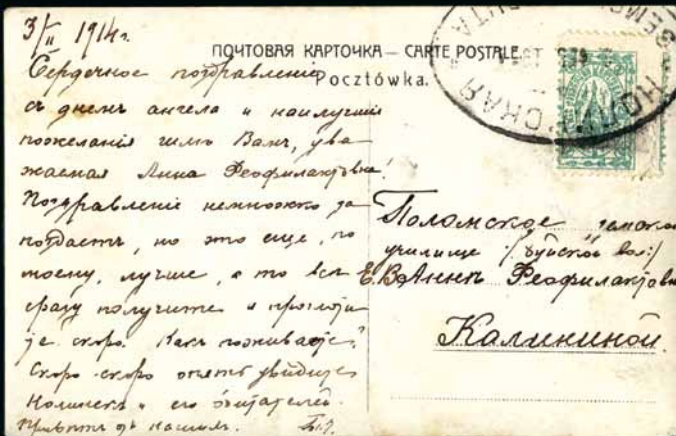 3/II 1914 г.
ПОЧТОВАЯ КАРТОЧКА — CARTE POSTALE
Pocztówka.
Сердечное поздравленіе
съ днемъ ангела и наилучшія
пожеланія шлю Вамъ, ува-
жаемая Анна Феофилактовна!
Поздравленіе немножко за-
поздаетъ, но это еще, по
моему, лучше, а то всѣ
сразу получите и
скоро. Какъ поживаете?
Скоро-скоро опять увидите
Нолинскъ и его обитателей.
Привѣтъ отъ нашихъ.
НОЛИНСКАЯ
ЗЕМС
Поломское земское
училище /: Буйской вол:/
Е.В. Аннѣ Феофилактовнѣ
Калининой.